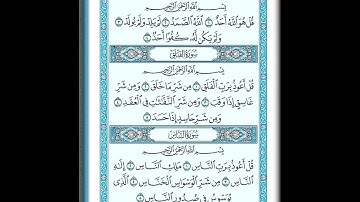 بِسْمِ اللَّهِ الرَّحْمَٰنِ الرَّحِيمِ
قُلْ هُوَ اللَّهُ أَحَدٌ ١ اللَّهُ الصَّمَدُ ٢ لَمْ يَلِدْ وَلَمْ يُولَدْ ٣
وَلَمْ يَكُن لَّهُ كُفُوًا أَحَدٌ ٤
سُورَةُ الفَلَقِ
بِسْمِ اللَّهِ الرَّحْمَٰنِ الرَّحِيمِ
قُلْ أَعُوذُ بِرَبِّ الْفَلَقِ ١ مِن شَرِّ مَا خَلَقَ ٢ وَمِن شَرِّ
غَاسِقٍ إِذَا وَقَبَ ٣ وَمِن شَرِّ النَّفَّاثَاتِ فِي الْعُقَدِ ٤
وَمِن شَرِّ حَاسِدٍ إِذَا حَسَدَ ٥
سُورَةُ النَّاسِ
بِسْمِ اللَّهِ الرَّحْمَٰنِ الرَّحِيمِ
قُلْ أَعُوذُ بِرَبِّ النَّاسِ ١ مَلِكِ النَّاسِ ٢ إِلَٰهِ
النَّاسِ ٣ مِن شَرِّ الْوَسْوَاسِ الْخَنَّاسِ ٤ الَّذِي
يُوَسْوِسُ فِي صُدُورِ النَّاسِ ٥